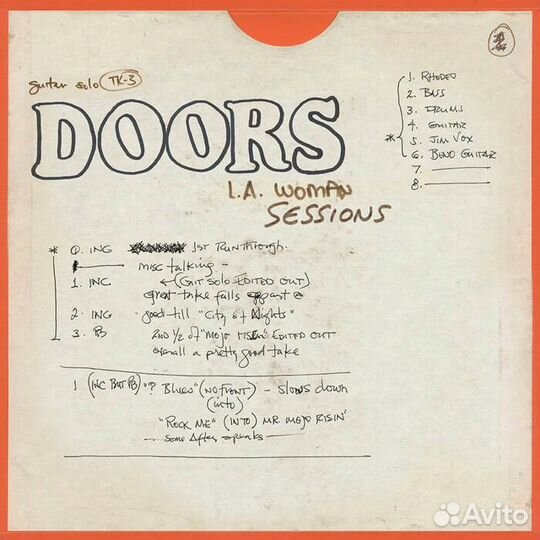 guitar solo TK-3
DOORS
L.A. WOMAN
SESSIONS
1. RHODEO
2. BASS
3. DRUMS
4. GUITAR
* 5. JIM VOX
6. BENO GUITAR
7.
8.
* 0. INC 1ST RUNTHROUGH.
misc talking -
1. INC ←(GIT SOLO EDITED OUT)
great take falls apart @
2. INC good till "City of Nights"
3. PB 2ND 1/2 of "MOJO RISEN" EDITED OUT
overall a pretty good take
1 (INC BUT PB) "? BLUES" (NO FRONT) - slows down
(into)
"ROCK ME" (INTO) MR. MOJO RISIN'
- some After speaks -
Avito